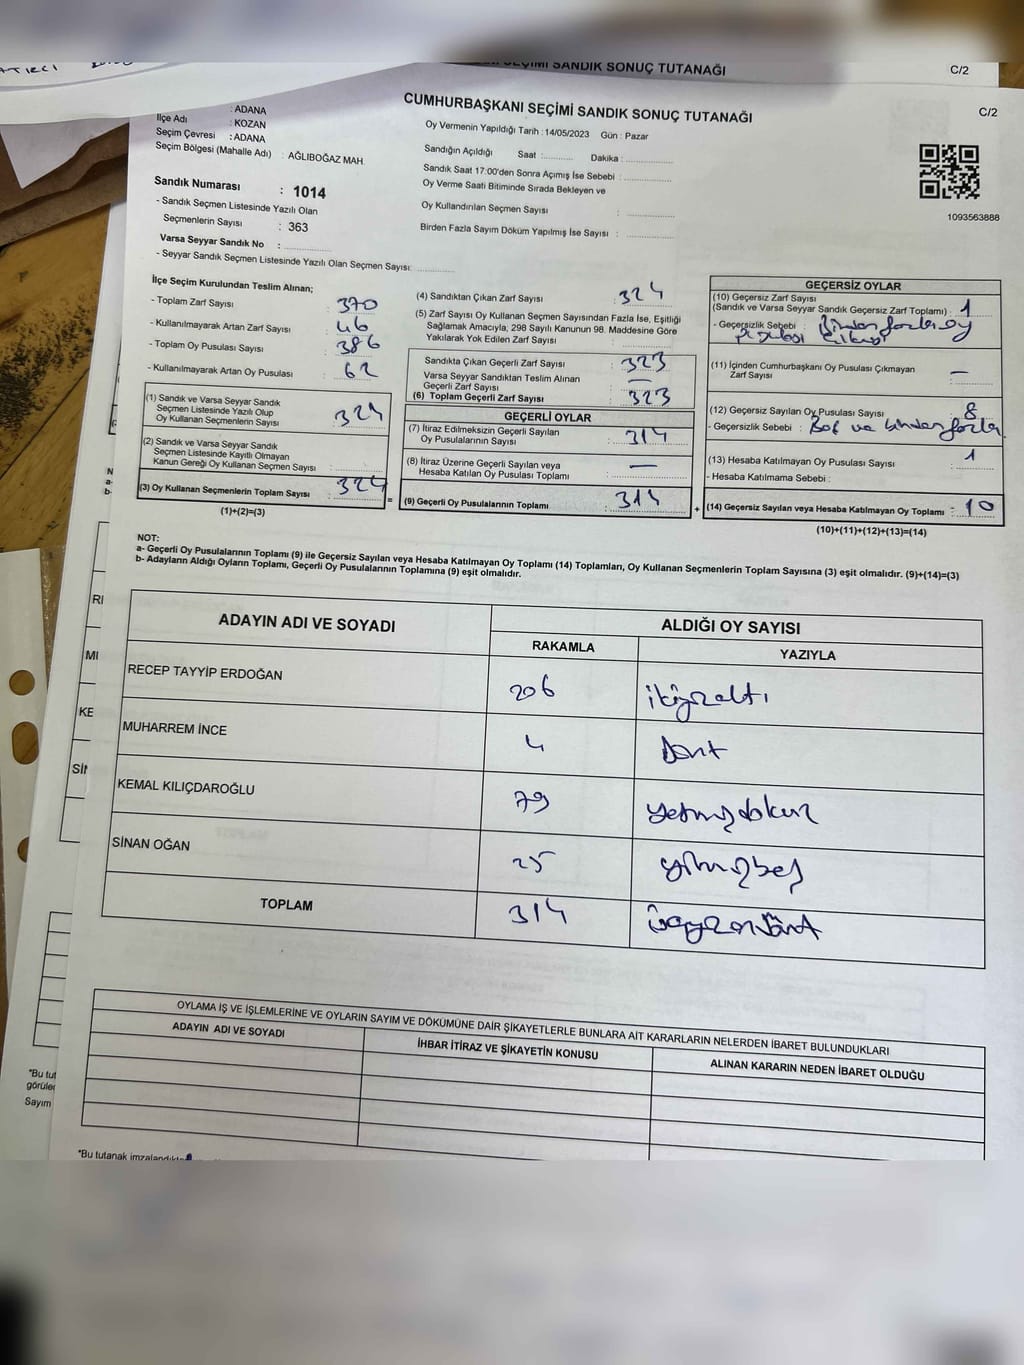 SEÇİMİ SANDIK SONUÇ TUTANAĞI
C/2
CUMHURBAŞKANI SEÇİMİ SANDIK SONUÇ TUTANAĞI
C/2
: ADANA
İlçe Adı : KOZAN
Seçim Çevresi : ADANA
Seçim Bölgesi (Mahalle Adı) : AĞLIBOĞAZ MAH.
Oy Vermenin Yapıldığı Tarih : 14/05/2023 Gün : Pazar
Sandığın Açıldığı Saat : Dakika :
Sandık Saat 17:00'den Sonra Açımış İse Sebebi :
Oy Verme Saati Bitiminde Sırada Bekleyen ve
Oy Kullandırılan Seçmen Sayısı :
Birden Fazla Sayım Döküm Yapılmış İse Sayısı :
1093563888
Sandık Numarası : 1014
- Sandık Seçmen Listesinde Yazılı Olan
Seçmenlerin Sayısı : 363
Varsa Seyyar Sandık No :
- Seyyar Sandık Seçmen Listesinde Yazılı Olan Seçmen Sayısı:
İlçe Seçim Kurulundan Teslim Alınan;
- Toplam Zarf Sayısı : 370
- Kullanılmayarak Artan Zarf Sayısı : 46
- Toplam Oy Pusulası Sayısı : 386
- Kullanılmayarak Artan Oy Pusulası : 62
(1) Sandık ve Varsa Seyyar Sandık
Seçmen Listesinde Yazılı Olup
Oy Kullanan Seçmenlerin Sayısı : 324
(2) Sandık ve Varsa Seyyar Sandık
Seçmen Listesinde Kayıtlı Olmayan
Kanun Gereği Oy Kullanan Seçmen Sayısı :
(3) Oy Kullanan Seçmenlerin Toplam Sayısı : 324
(1)+(2)=(3)
(4) Sandıktan Çıkan Zarf Sayısı : 324
(5) Zarf Sayısı Oy Kullanan Seçmen Sayısından Fazla İse, Eşitliği
Sağlamak Amacıyla, 298 Sayılı Kanunun 98. Maddesine Göre
Yakılarak Yok Edilen Zarf Sayısı :
Sandıkta Çıkan Geçerli Zarf Sayısı : 323
Varsa Seyyar Sandıktan Teslim Alınan
Geçerli Zarf Sayısı : —
(6) Toplam Geçerli Zarf Sayısı : 323
GEÇERLİ OYLAR
(7) İtiraz Edilmeksizin Geçerli Sayılan
Oy Pusulalarının Sayısı : 314
(8) İtiraz Üzerine Geçerli Sayılan veya
Hesaba Katılan Oy Pusulası Toplamı : —
= (9) Geçerli Oy Pusulalarının Toplamı : 314
GEÇERSİZ OYLAR
(10) Geçersiz Zarf Sayısı
(Sandık ve Varsa Seyyar Sandık Geçersiz Zarf Toplamı) : 1
- Geçersizlik Sebebi : Birden fazla oy
pusulası
(11) İçinden Cumhurbaşkanı Oy Pusulası Çıkmayan
Zarf Sayısı : —
(12) Geçersiz Sayılan Oy Pusulası Sayısı : 8
- Geçersizlik Sebebi : Boş ve birden fazla
(13) Hesaba Katılmayan Oy Pusulası Sayısı : 1
- Hesaba Katılmama Sebebi :
+ (14) Geçersiz Sayılan veya Hesaba Katılmayan Oy Toplamı : 10
(10)+(11)+(12)+(13)=(14)
NOT:
a- Geçerli Oy Pusulalarının Toplamı (9) ile Geçersiz Sayılan veya Hesaba Katılmayan Oy Toplamı (14) Toplamları, Oy Kullanan Seçmenlerin Toplam Sayısına (3) eşit olmalıdır. (9)+(14)=(3)
b- Adayların Aldığı Oyların Toplamı, Geçerli Oy Pusulalarının Toplamına (9) eşit olmalıdır.
ADAYIN ADI VE SOYADI
ALDIĞI OY SAYISI
RAKAMLA YAZIYLA
RECEP TAYYİP ERDOĞAN 206 ikiyüzaltı
MUHARREM İNCE 4 Dört
KEMAL KILIÇDAROĞLU 79 yetmişdokuz
SİNAN OĞAN 25 yirmibeş
TOPLAM 314 üçyüzondört
OYLAMA İŞ VE İŞLEMLERİNE VE OYLARIN SAYIM VE DÖKÜMÜNE DAİR ŞİKAYETLERLE BUNLARA AİT KARARLARIN NELERDEN İBARET BULUNDUKLARI
ADAYIN ADI VE SOYADI İHBAR İTİRAZ VE ŞİKAYETİN KONUSU ALINAN KARARIN NEDEN İBARET OLDUĞU
*Bu tutanak imzalandıkta
*Bu tut
görüle
Sayım